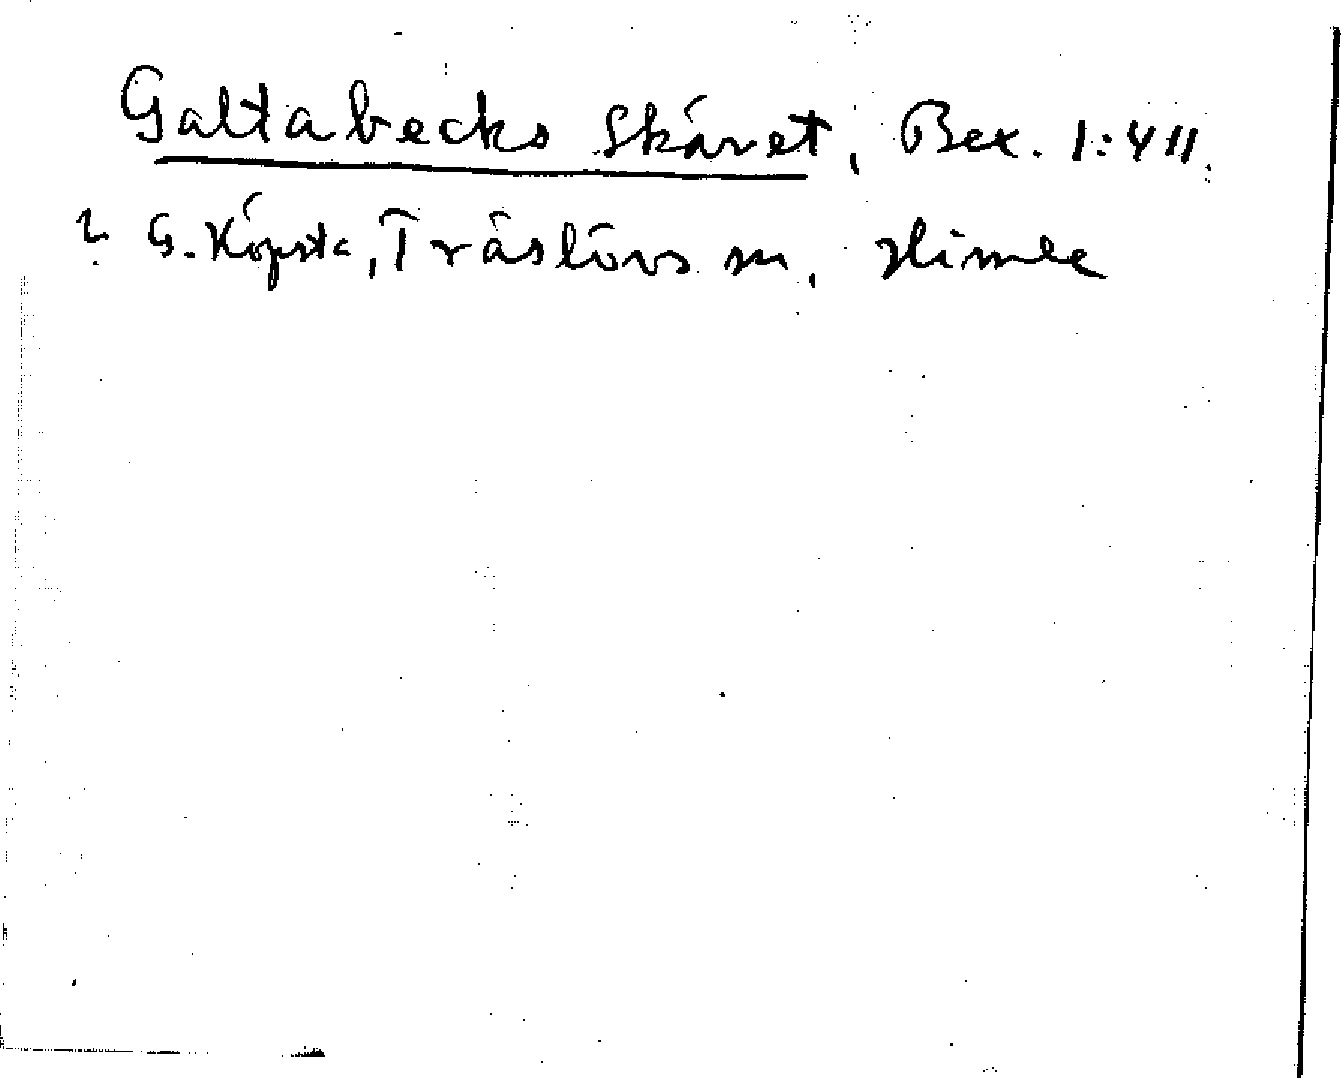 Galtabecks Skäret, Bex. 1:411.
? G. Köpsta, Träslövs sn, Himle